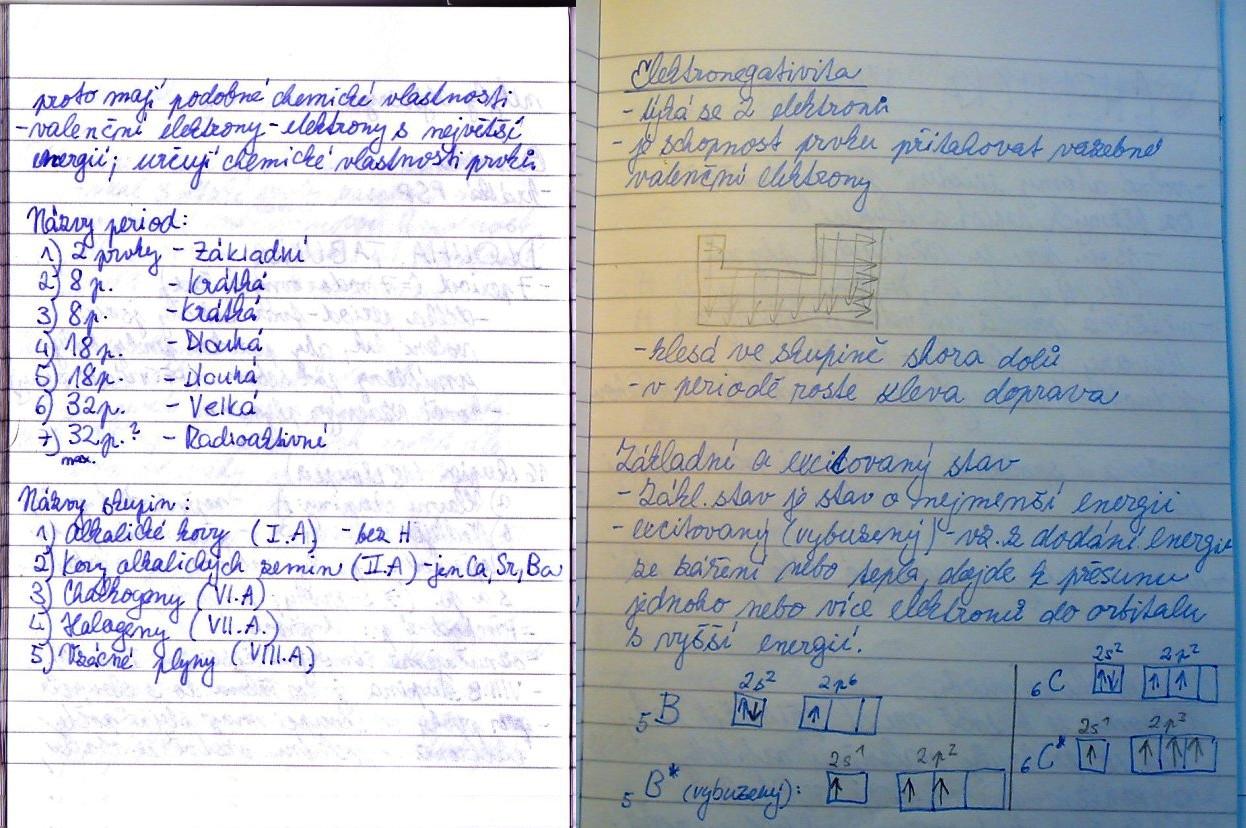 proto mají podobné chemické vlastnosti
- valenční elektrony - elektrony s největší
energií; určují chemické vlastnosti prvků
Názvy period:
1) 2 prvky - Základní
2) 8 p. - Krátká
3) 8 p. - Krátká
4) 18 p. - Dlouhá
5) 18 p. - Dlouhá
6) 32 p. - Velká
7) 32 p.? - Radioaktivní
max.
Názvy skupin:
1) Alkalické kovy (I.A) - bez H
2) Kovy alkalických zemin (II.A) - jen Ca, Sr, Ba
3) Chalkogeny (VI.A)
4) Halogeny (VII.A.)
5) Vzácné plyny (VIII.A)
Elektronegativita
- týká se 2 elektronů
- je schopnost prvku přitahovat vazebné
valenční elektrony
- klesá ve skupině shora dolů
- v periodě roste zleva doprava
Základní a excitovaný stav
- Zákl. stav je stav o nejmenší energii
- excitovaný (vybuzený) - vz. z dodání energie
ze záření nebo tepla, dojde k přesunu
jednoho nebo více elektronů do orbitalu
s vyšší energií.
2s² 2p⁶
₅B ↑↓ ↑
2s¹ 2p²
₅B* (vybuzený): ↑ ↑ ↑
2s² 2p²
₆C ↑↓ ↑ ↑
2s¹ 2p³
₆C* ↑ ↑ ↑ ↑